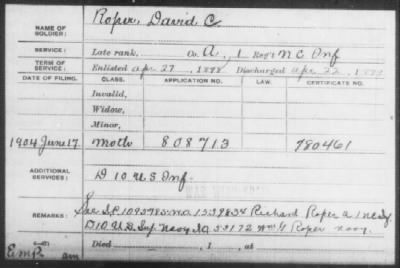 NAME OF SOLDIER: Roper, David C.
SERVICE: Late rank, Co. A, 1 Reg't N C Inf
TERM OF SERVICE: Enlisted Apr 27, 1898 Discharged Apr 22, 1899
DATE OF FILING. CLASS. APPLICATION NO. LAW. CERTIFICATE NO.
Invalid,
Widow,
Minor,
1904 June 17 Moth 808713 780461
ADDITIONAL SERVICES: D 10 U S Inf.
REMARKS: See S.C. 1095785 mo. 1339834 Richard Roper A 1 NC Inf
D 10 U.S. Inf. Navy 33172 Wm G Roper navy.
Died , 1 , at
Emp. am